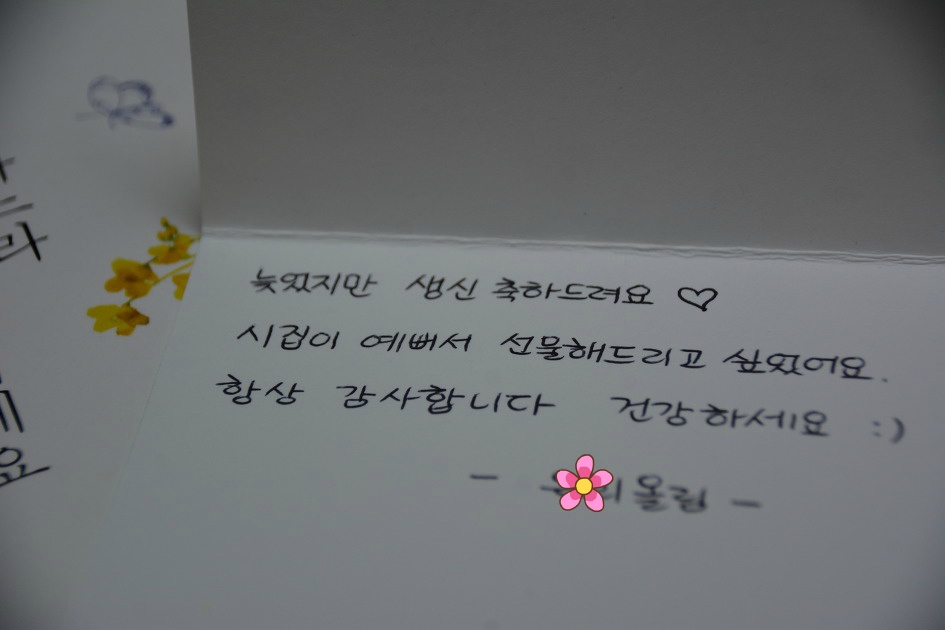 늦었지만 생신 축하드려요 ♡
시집이 예뻐서 선물해드리고 싶었어요.
항상 감사합니다 건강하세요 :)
- 올림 -
라
요